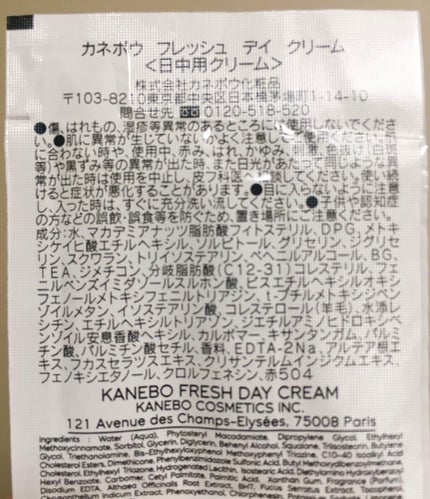 カネボウ フレッシュ デイ クリーム
<日中用クリーム>
株式会社カネボウ化粧品
〒103-8210東京都中央区日本橋茅場町1-14-10
問合せ先 0120-518-520
●傷、はれもの、湿疹等異常のあるところには使用しないでくださ
い。●肌に異常が生じていないかよく注意してご使用ください。肌
に合わない時や、使用中、赤み、はれ、かゆみ、刺激、色抜け(白斑
等)や黒ずみ等の異常が出た時、また日光があたって同じような異
常が出た時は使用を中止し、皮フ科医へ相談してください。使い続
けると症状が悪化することがあります。●目に入らないように注意
し、入った時は、すぐに充分洗い流してください。●子供や認知症
の方などの誤飲・誤食等を防ぐため、置き場所にご注意ください。
成分:水、マカデミアナッツ脂肪酸フィトステリル、DPG、メトキ
シケイヒ酸エチルヘキシル、ソルビトール、グリセリン、ジグリセ
リン、スクワラン、トリイソステアリン、ベヘニルアルコール、BG、
TEA、ジメチコン、分岐脂肪酸(C12-31)コレステリル、フェ
ニルベンズイミダゾールスルホン酸、ビスエチルヘキシルオキシ
フェノールメトキシフェニルトリアジン、t-ブチルメトキシジベン
ゾイルメタン、イソステアリン酸、コレステロール(羊毛)、水添レ
シチン、エチルヘキシルトリアゾン、ジエチルアミノヒドロキシベ
ンゾイル安息香酸ヘキシル、カルボマー、キサンタンガム、パルミ
チン酸、パルミチン酸セチル、香料、EDTA-2Na、アルテア根エ
キス、フカスセラツスエキス、クリサンテルムインジクムエキス、
フェノキシエタノール、クロルフェネシン、赤504
KANEBO FRESH DAY CREAM
KANEBO COSMETICS INC.
121 Avenue des Champs-Elysées, 75008 Paris
Ingredients : Water (Aqua), Phytosteryl Macadamiate, Dipropylene Glycol, Ethylhexyl
Methoxycinnamate, Sorbitol, Glycerin, Diglycerin, Behenyl Alcohol, Squalane, Triisostearin, Butylene
Glycol, Triethanolamine, Bis-Ethylhexyloxyphenol Methoxyphenyl Triazine, C10-40 Isoalkyl Acid
Cholesterol Esters, Dimethicone, Phenylbenzimidazole Sulfonic Acid, Butyl Methoxydibenzoylmethane,
Cholesterol, Ethylhexyl Triazone, Hydrogenated Lecithin, Isostearic Acid, Diethylamino Hydroxybenzoyl
Hexyl Benzoate, Carbomer, Cetyl Palmitate, Palmitic Acid, Xanthan Gum, Fragrance (Parfum),
Disodium EDTA, Althaea Officinalis Root Extract, BHT, Fucus Serratus Extract, Tocopherol,
Chrysanthellum Indicum Extract, Phenoxyethanol, Chlorphenesin